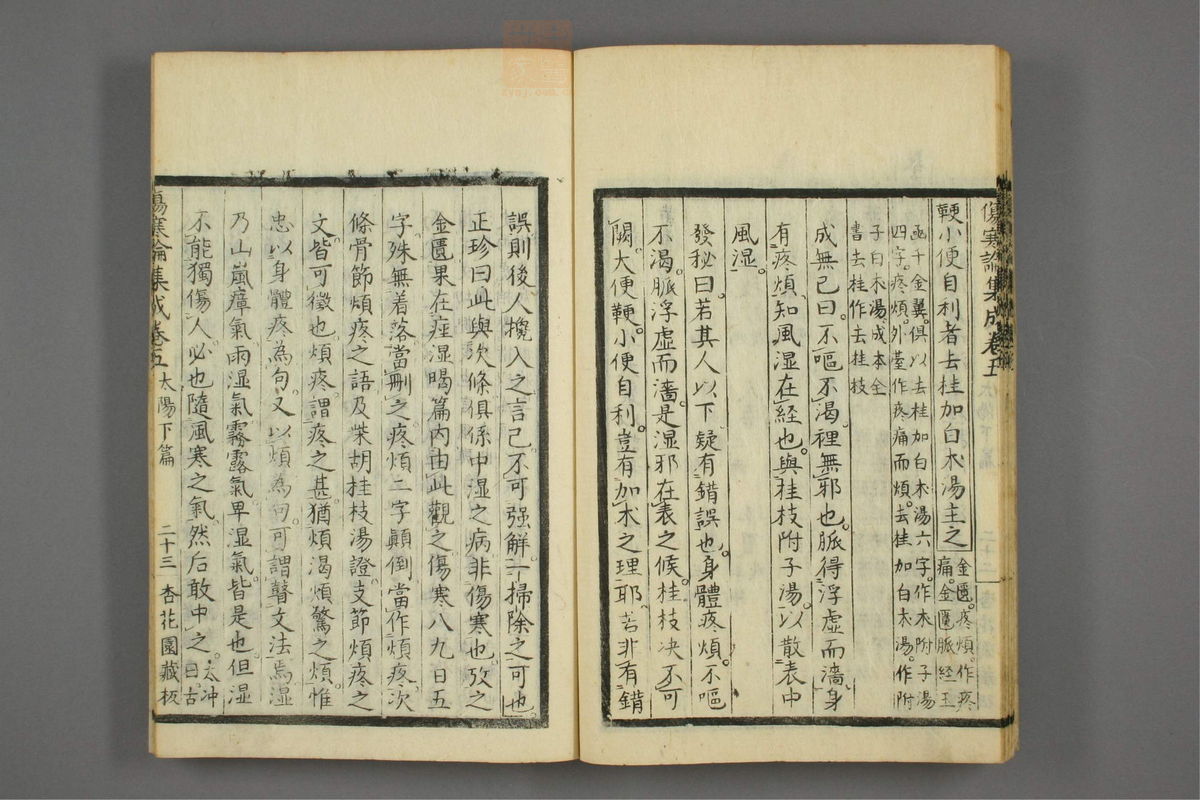 傷寒論集成卷五
鞕小便自利者去桂加白朮湯主之
金匱疼煩作疼
痛金匱脈經玉
函千金翼俱以去桂加白朮湯六字作朮附子湯
四字疼煩外臺作疼痛而煩去桂加白朮湯作附
子白朮湯成本全
書去桂作去桂枝
成無己曰不嘔不渴裡無邪也脈得浮虛而濇身
有疼煩知風湿在經也與桂枝附子湯以散表中
風湿
發秘曰若其人以下疑有錯誤也身體疼煩不嘔
不渴脈浮虛而濇是湿邪在表之候桂枝決不可
闕大便鞕小便自利豈有加朮之理耶若非有錯
誤則後人攙入之言已不可强解一掃除之可也
正珍曰此與次條俱係中湿之病非傷寒也攷之
金匱果在痙湿暍篇內由此觀之傷寒八九日五
字殊無着落當刪之疼煩二字顛倒當作煩疼次
條骨節煩疼之語及柴胡桂枝湯證支節煩疼之
文皆可徵也煩疼謂疼之甚猶煩渴煩驚之煩惟
忠以身體疼為句又以煩為句可謂瞽文法焉湿
乃山嵐瘴氣雨湿氣霧露氣卑湿氣皆是也但湿
不能獨傷人必也隨風寒之氣然后敢中之
太冲
曰古
傷寒論集成卷五 太陽下篇 二十三 杏花園藏板